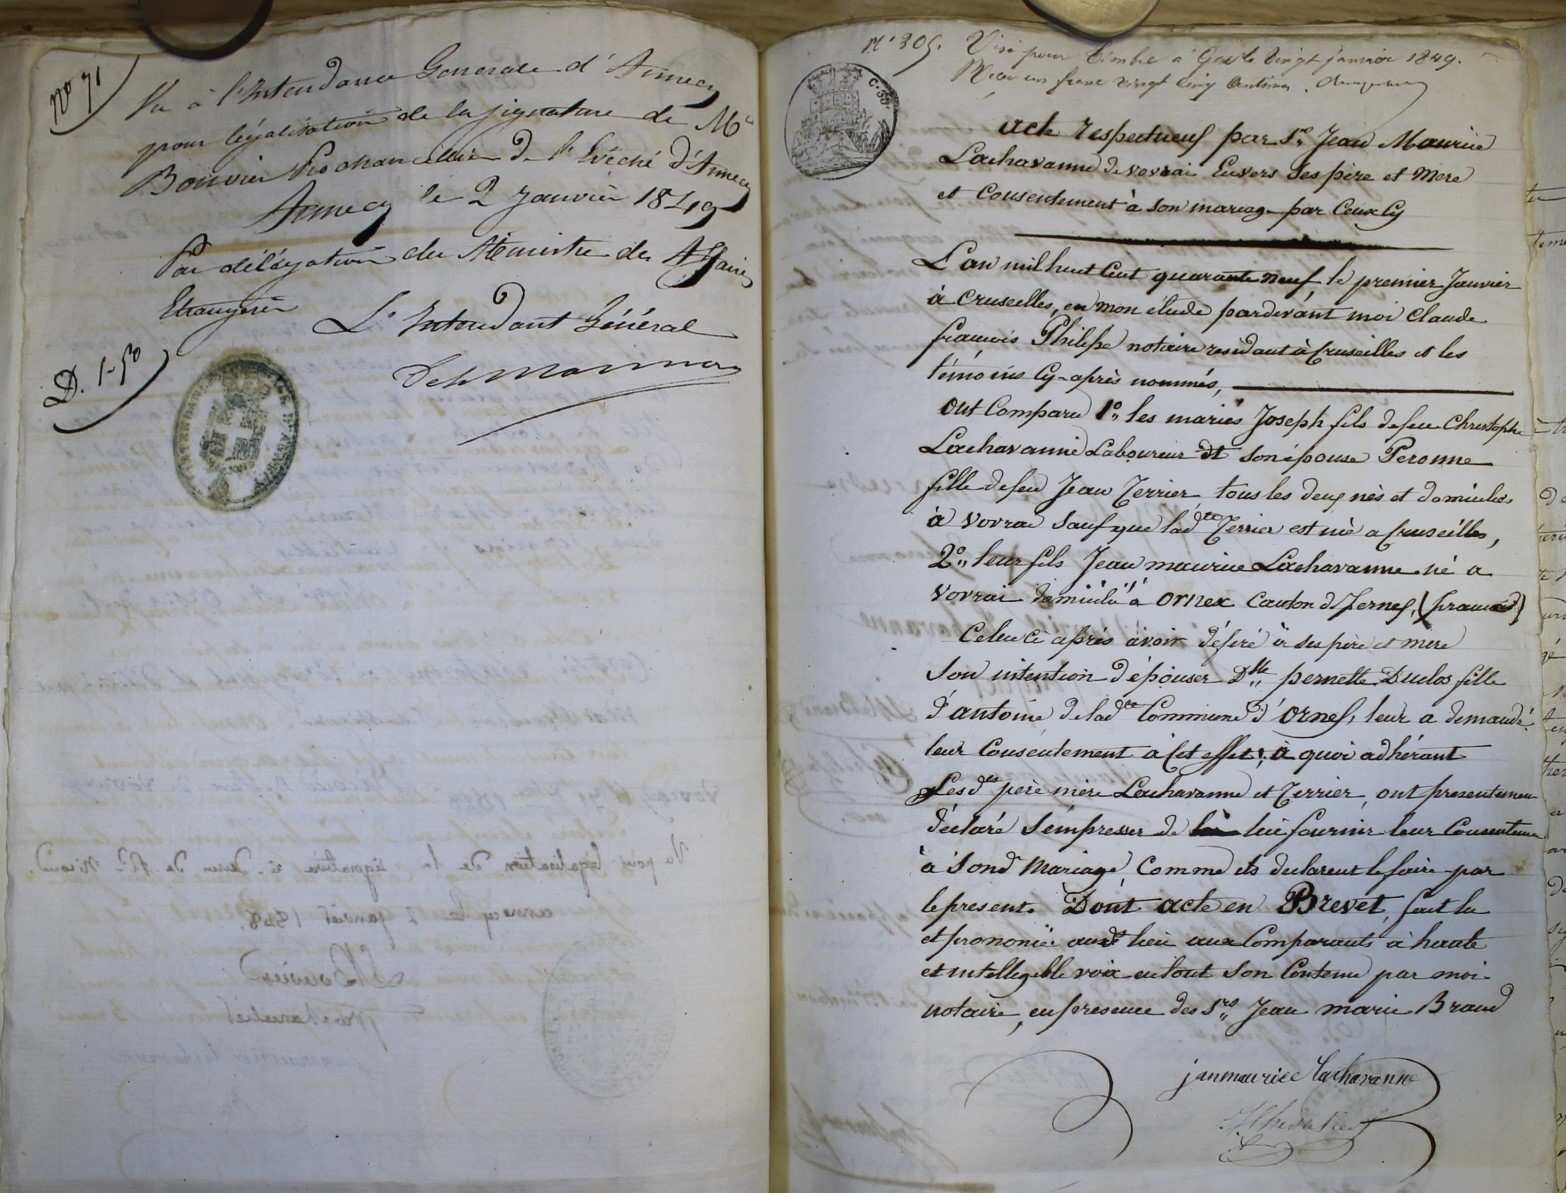 No 71
Vu à l'Intendance Generale d'Annecy
pour légalisation de la signature de Mr
Bouvier Prochancellier de l'Evêché d'Annecy
Annecy le 2 Janvier 1849
Par délégation du Ministre des Affaires
Etrangères
L'Intendant Général
D. 1-50
N° 305. Visé pour timbre à Gex le vingt janvier 1849.
Reçu un franc vingt cinq centimes.
C. 50.
acte respectueux par Sr Jean Maurice
Lachavanne de vovrai Envers ses père et Mere
et Consentement à son mariage par Ceux Cy
L'an mil huit Cent quarante neuf, le premier Janvier
à Cruseilles, en mon étude pardevant moi Claude
françois Philippe notaire residant à Cruseilles et les
témoins Cy-après nommés,
ont Comparu 1° les mariés Joseph fils de feu Christophe
Lachavanne Laboureur et son épouse Peronne
fille de feu Jean Terrier tous les deux nés et domiciliés
à Vovrai sauf que lad.te Terrier est née a Cruseilles,
2° leur fils Jean maurice Lachavanne né a
Vovrai domicilié à Ornex Canton de Ferney, (france)
Celui ci après avoir déféré à ses père et mere
son intention d'épouser Dlle pernette Duclos fille
d'antoine de lad.te Commune d'Ornex, leur a demandé
leur Consentement à Cet effet; à quoi adhérant
Lesd.ts père mère Lachavanne et Terrier, ont presentement
déclaré s'empresser de lui fournir leur Consentement
à Sond Mariage, Comme ils declarent le faire par
le present. Dont acte en Brevet, fait lu
et prononcé aud lieu aux Comparants à haute
et intelligible voix en tout son Contenu par moi
notaire, en presence des Srs Jean marie Brand
janmaurice lachavanne